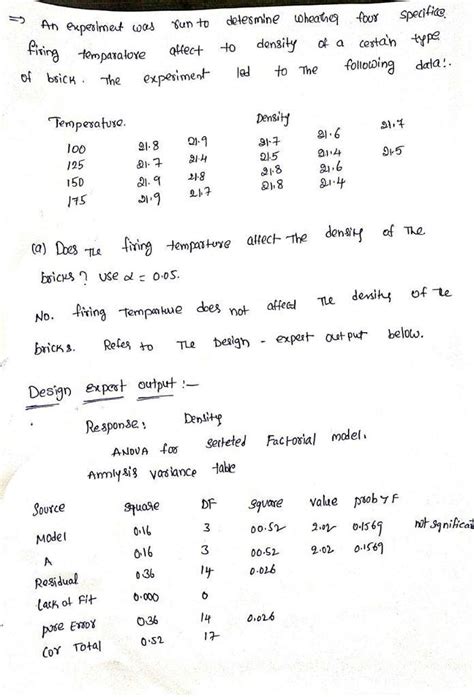 => An experiment was run to determine wheather four specific
firing temparatore affect to density of a certain type
of brick. The experiment led to The following data!.
Temperature. Density
100 21.8 21.9 21.7 21.6 21.7
125 21.7 21.4 21.5 21.4 21.5
150 21.9 21.8 21.8 21.6
175 21.9 21.7 21.8 21.4
(a) Does The firing temparture affect The density of The
bricks? use α = 0.05.
No. firing Temparture does not affect The density of The
bricks. Refes to The Design - expert output below.
Design expert output :-
Response: Density
ANOVA for selteted Factorial model.
Annlysis variance table
Source square DF square value prob > F
Model 0.16 3 00.52 2.02 0.1569 not significat
A 0.16 3 00.52 2.02 0.1569
Residual 0.36 14 0.026
lack of Fit 0.000 0
pure Error 0.36 14 0.026
Cor Total 0.52 17